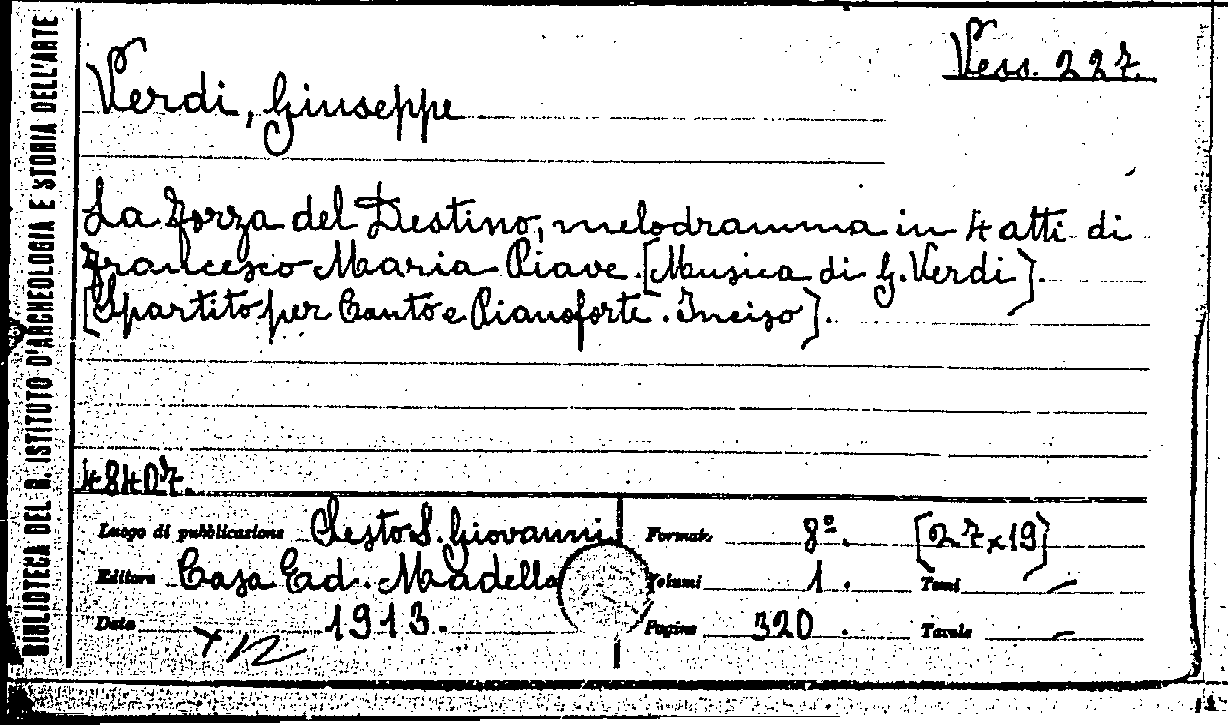 BIBLIOTECA DEL R. ISTITUTO D'ARCHEOLOGIA E STORIA DELL'ARTE
Vess. 227.
Verdi, Giuseppe
La Forza del Destino, melodramma in 4 atti di
Francesco Maria Piave. [Musica di G. Verdi].
[Spartito per Canto e Pianoforte. Inciso].
48407.
Luogo di pubblicazione Sesto S. Giovanni Formato 8º. [27x19]
Editore Casa Ed. Madella Volumi 1. Tomi —
Data 1913. Pagine 320. Tavole —